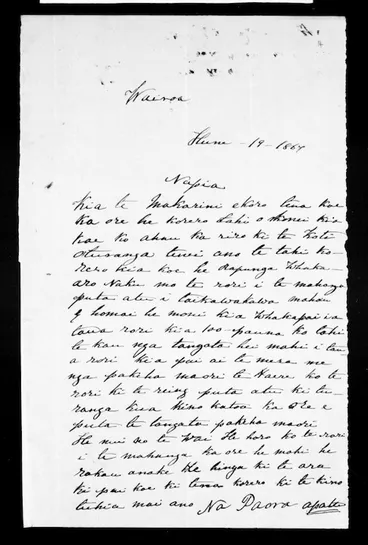 Wairoa
Hune - 19 - 1867
Napia
Kia te Makarini ekoro tena koe
Ka ore he korero o konei kia
koe ko ahau ka riro ki te Koti
tenei ano te tahi ko-
rero kia koe he Rapunga Whaka-
aro Naku mo te rori i te mahanga
puta atu i taikawakawa mahau
e homai he moni kia Whakapai ia
taua rori kia 100 pauna ko tahi
te kau nga tangata hei mahi i tau
a rori kia pai ai te mera me
nga pakeha maori te Haere ko te
rori ki te reinga puta atu ki tu-
ranga kua kino katoa ka ore e
puta te tangata pakeha maori
He nui no te Wai He horo ko te rori
i te mahanga ka ore he mahi he
rakau anake Ke hinga ki te ara
ki pai koe ki tena korero ki te kino
tuhia mai ano Na Paora apatu